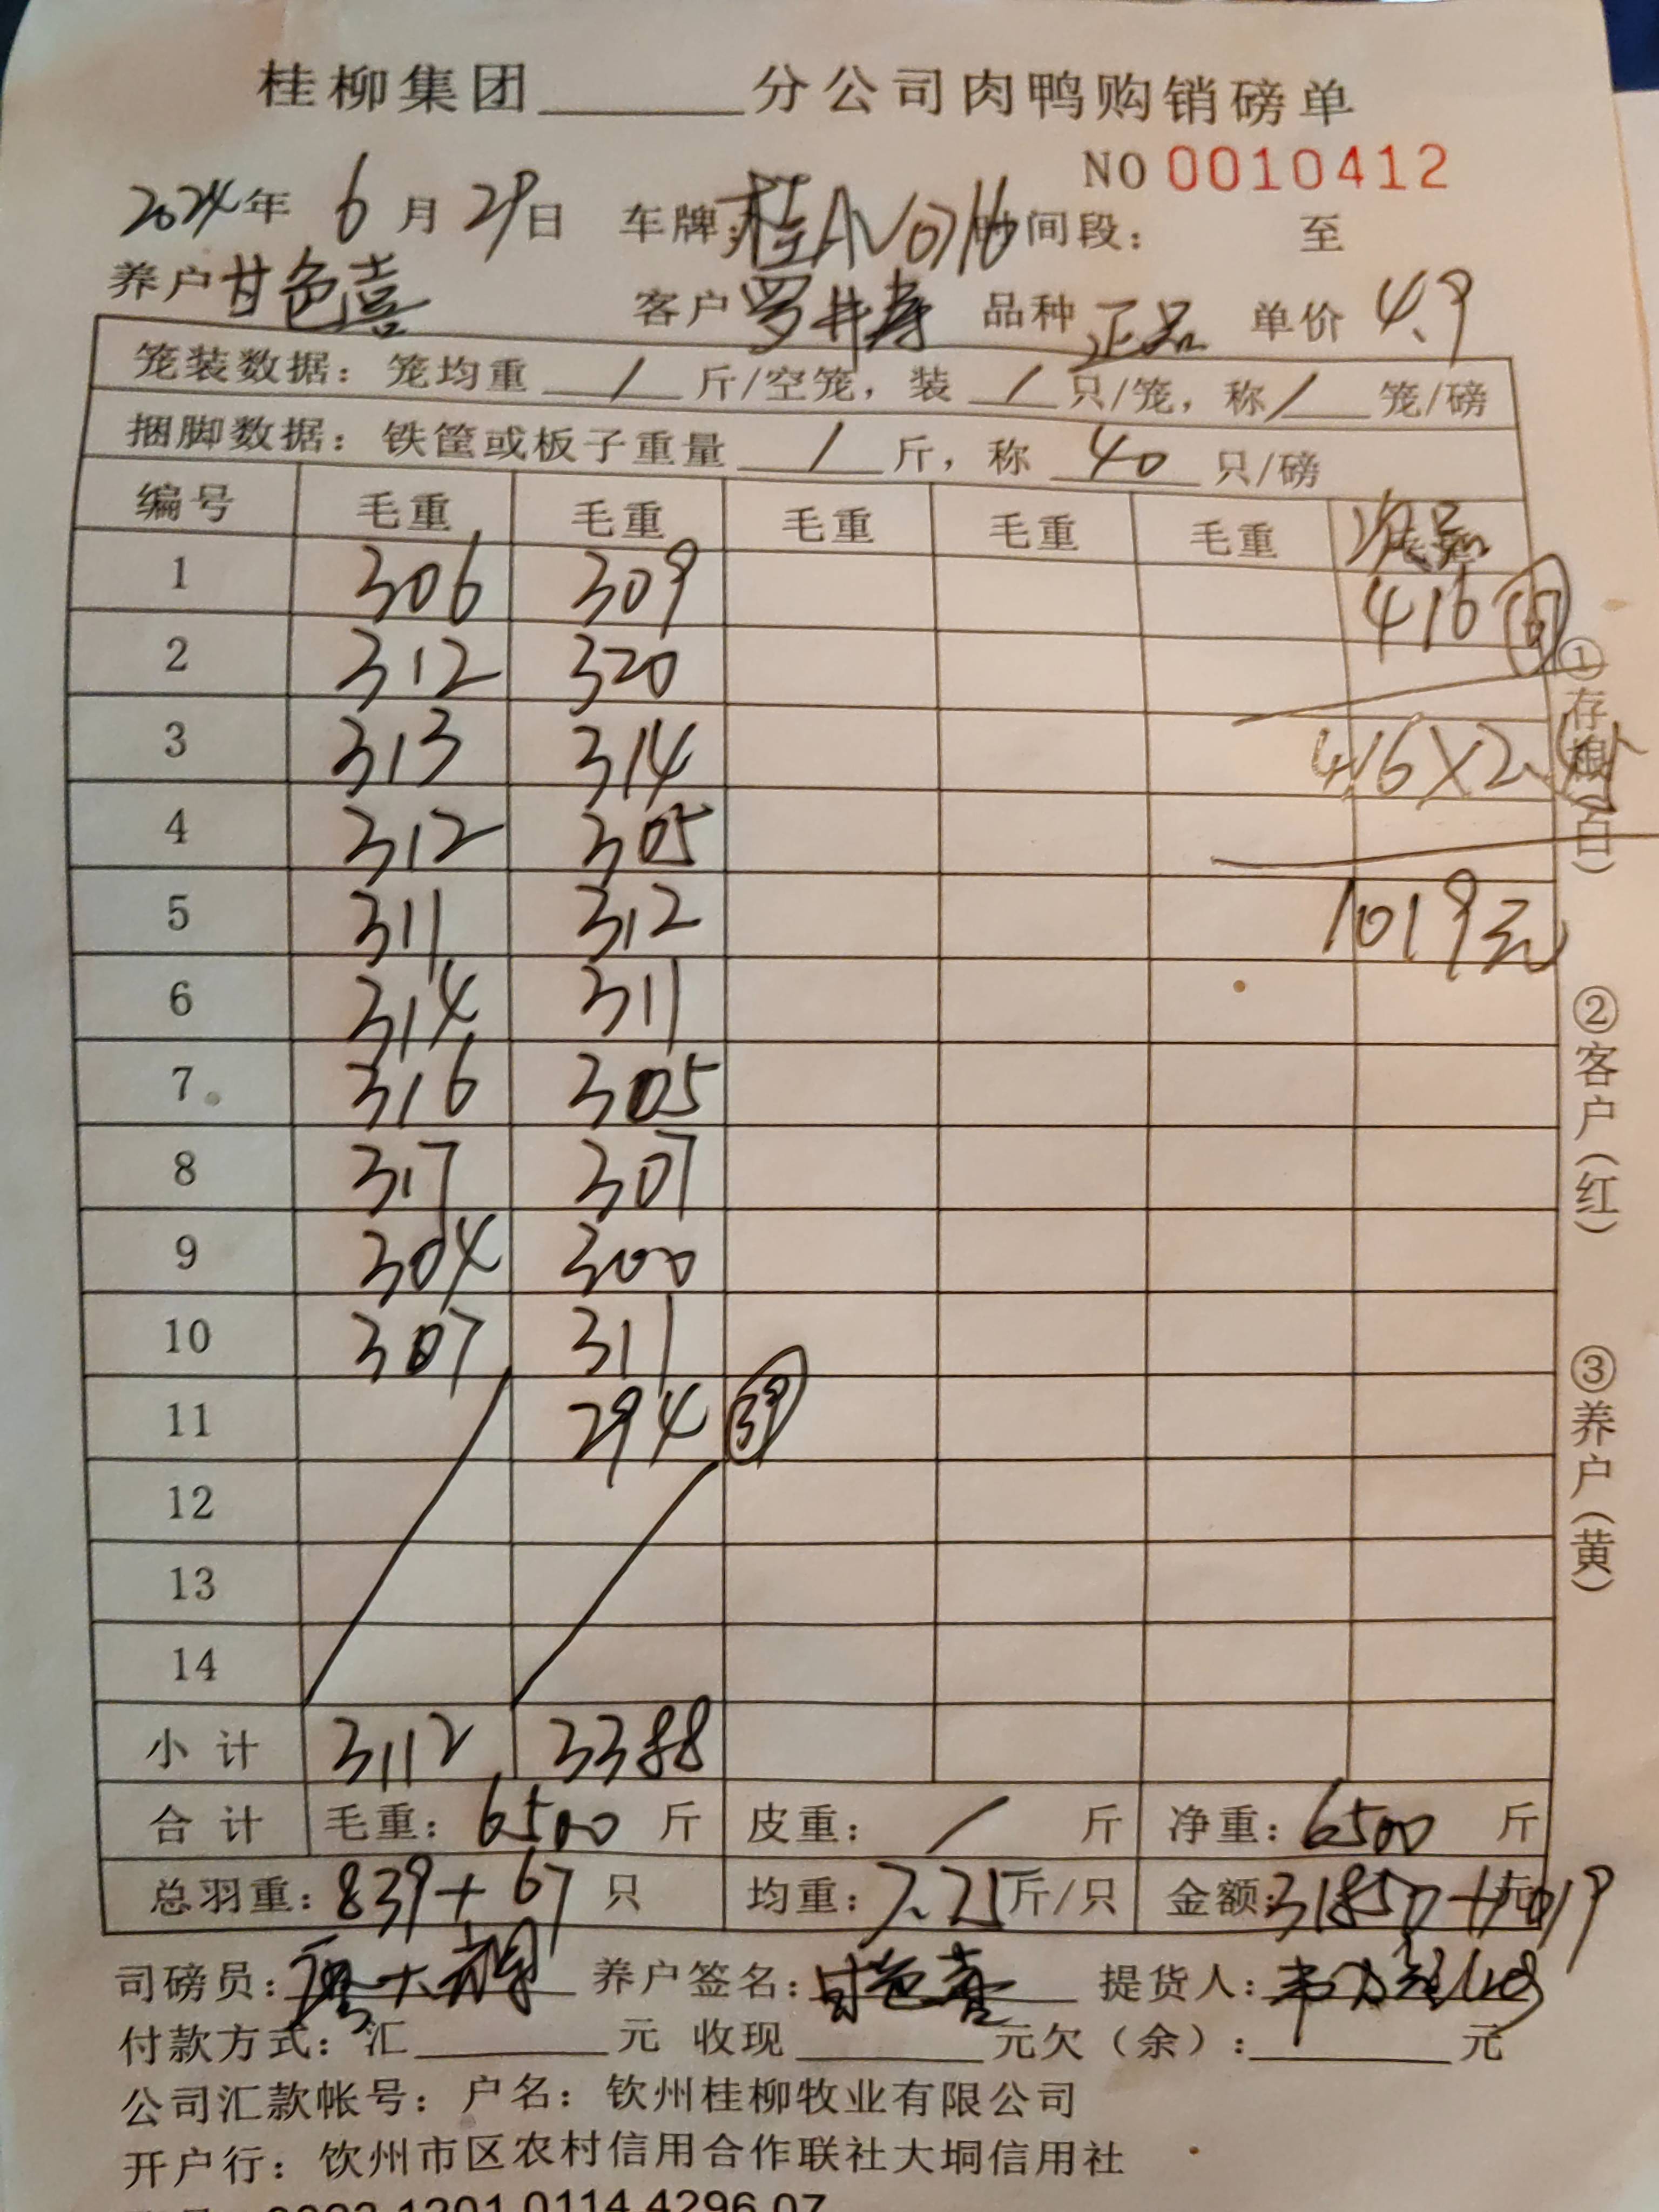 桂柳集团______分公司肉鸭购销磅单
NO 0010412
2024年 6月29日 车牌:桂AV0716 时间段: 至
养户 甘色喜 客户 罗 品种 正品 单价 4.9
笼装数据:笼均重 / 斤/空笼,装 / 只/笼,称 / 笼/磅
捆脚数据:铁筐或板子重量 / 斤,称 40 只/磅
编号 毛重 毛重 毛重 毛重 毛重 次品
1 306 309 416 67
2 312 320
3 313 314 416×2.45
4 312 305
5 311 312 1019元
6 314 311
7 316 305
8 317 307
9 304 300
10 307 311
11 294 39
12
13
14
小计 3112 3388
合计 毛重:6500斤 皮重: / 斤 净重:6500斤
总羽重:839+67只 均重:7.75斤/只 金额:31850+1019元
司磅员: 养户签名:甘色喜 提货人:
付款方式:汇______元 收现______元欠(余):______元
公司汇款帐号:户名:钦州桂柳牧业有限公司
开户行:钦州市区农村信用合作联社大垌信用社
①存根(白)
②客户(红)
③养户(黄)